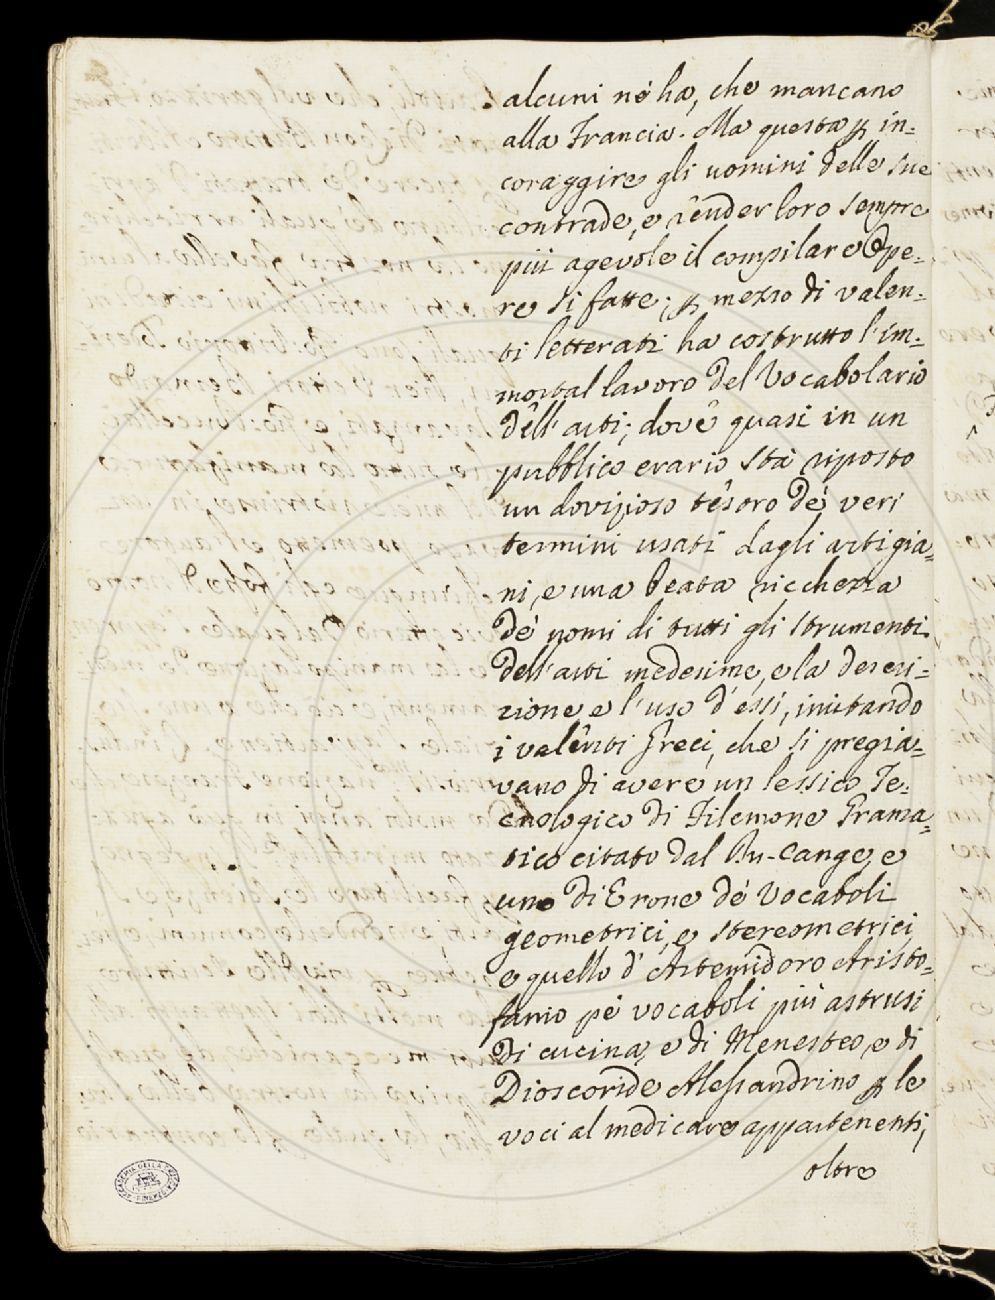 alcuni nè ha, che mancano
alla Francia. Ma questa ꝑ in-
coraggire gli uomini delle sue
contrade, e render loro sempre
più agevole il compilare Ope-
re si fatte; ꝑ mezzo di valen-
ti letterati ha costrutto l'im-
mortal lavoro del Vocabolario
dell'arti; dove quasi in un
pubblico erario stà riposto
un dovizioso tesoro de' veri
termini usati dagli artigia-
ni, e una beata ricchezza
de' nomi di tutti gli strumenti
dell'arti medesime, e la descri-
zione e l'uso d'essi, imitando
i valenti Greci, che si pregia-
vano di avere un lessico Te-
cnologico di Filemone Grama-
tico citato dal Du-Cange, e
uno di Erone de' Vocaboli
geometrici, e stereometrici
e quello d'Artemidoro Aristo-
fanio pe' vocaboli più astrusi
di cucina, e di Menesteo, e di
Dioscoride Alessandrino ꝑ le
voci al medicare appartenenti,
oltre
ACCADEMIA DELLA CRUSCA